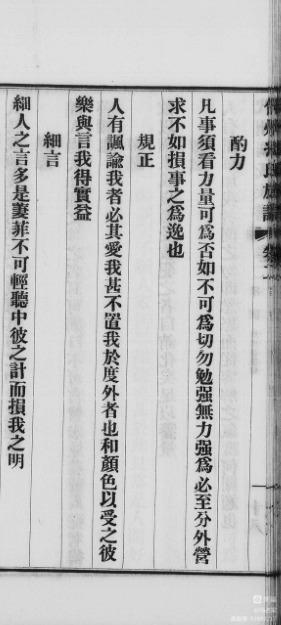 酌力
凡事須看力量可為否如不可為切勿勉强無力强為必至分外營
求不如損事之為逸也
規正
人有諷諭我者必其愛我甚不置我於度外者也和顏色以受之彼
樂與言我得實益
細言
細人之言多是萋菲不可輕聽中彼之計而損我之明